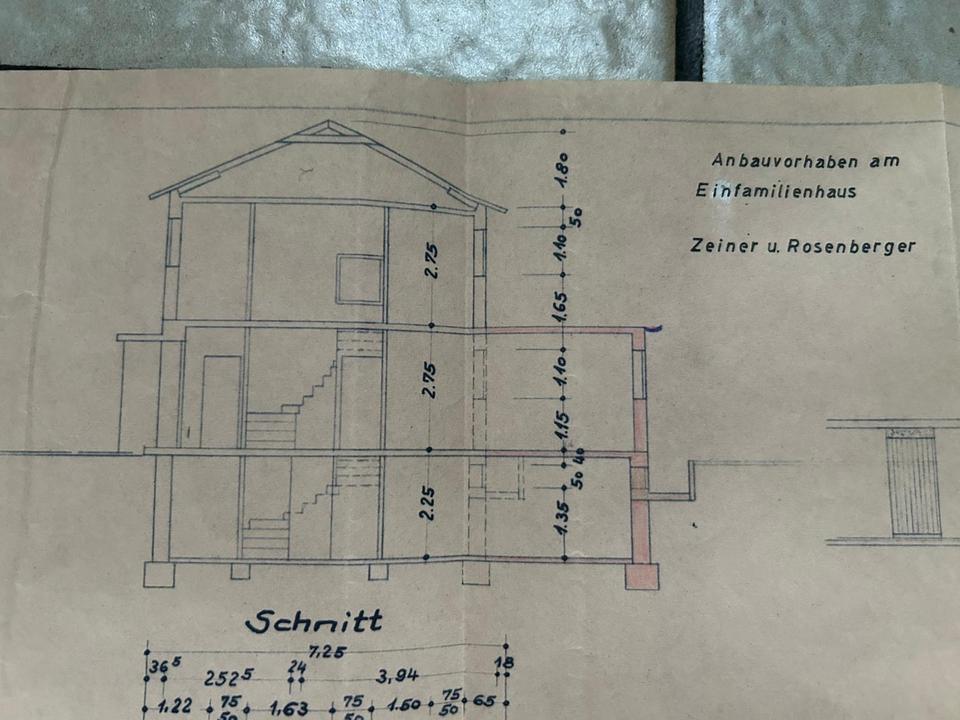 Anbauvorhaben am
Einfamilienhaus
Zeiner u. Rosenberger
1.80
50
1.10
2.75
1.65
1.10
2.75
1.15
40
50
2.25
1.35
Schnitt
7,25
36⁵ 252⁵ 24 3,94 18
1.22 75 1,63 75 1.60 75 65
50 50 50